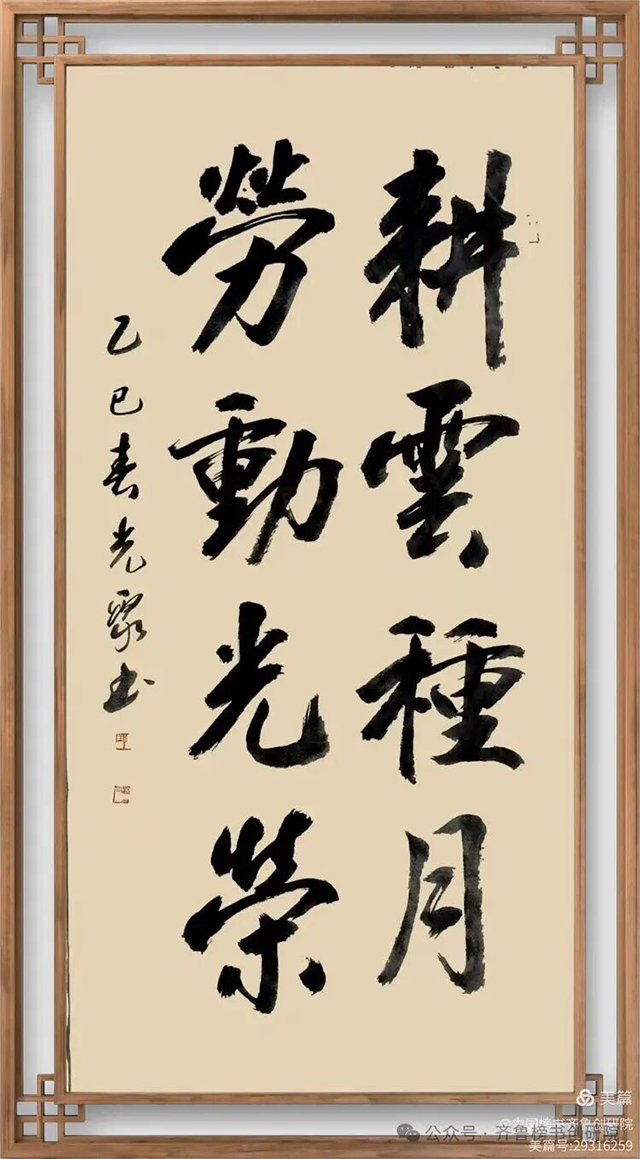 耕雲種月
勞動光榮
乙巳春光聚书
美篇
@中国榜书齐鲁创研院
公众号·齐鲁榜书创研院
美篇号:29316259